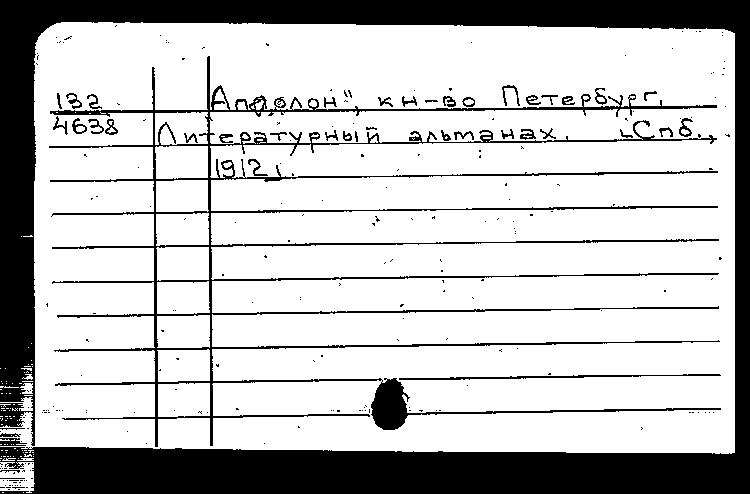 132 Аполлон", кн-во Петербург.
4638 Литературный альманах. [Спб.,
1912].